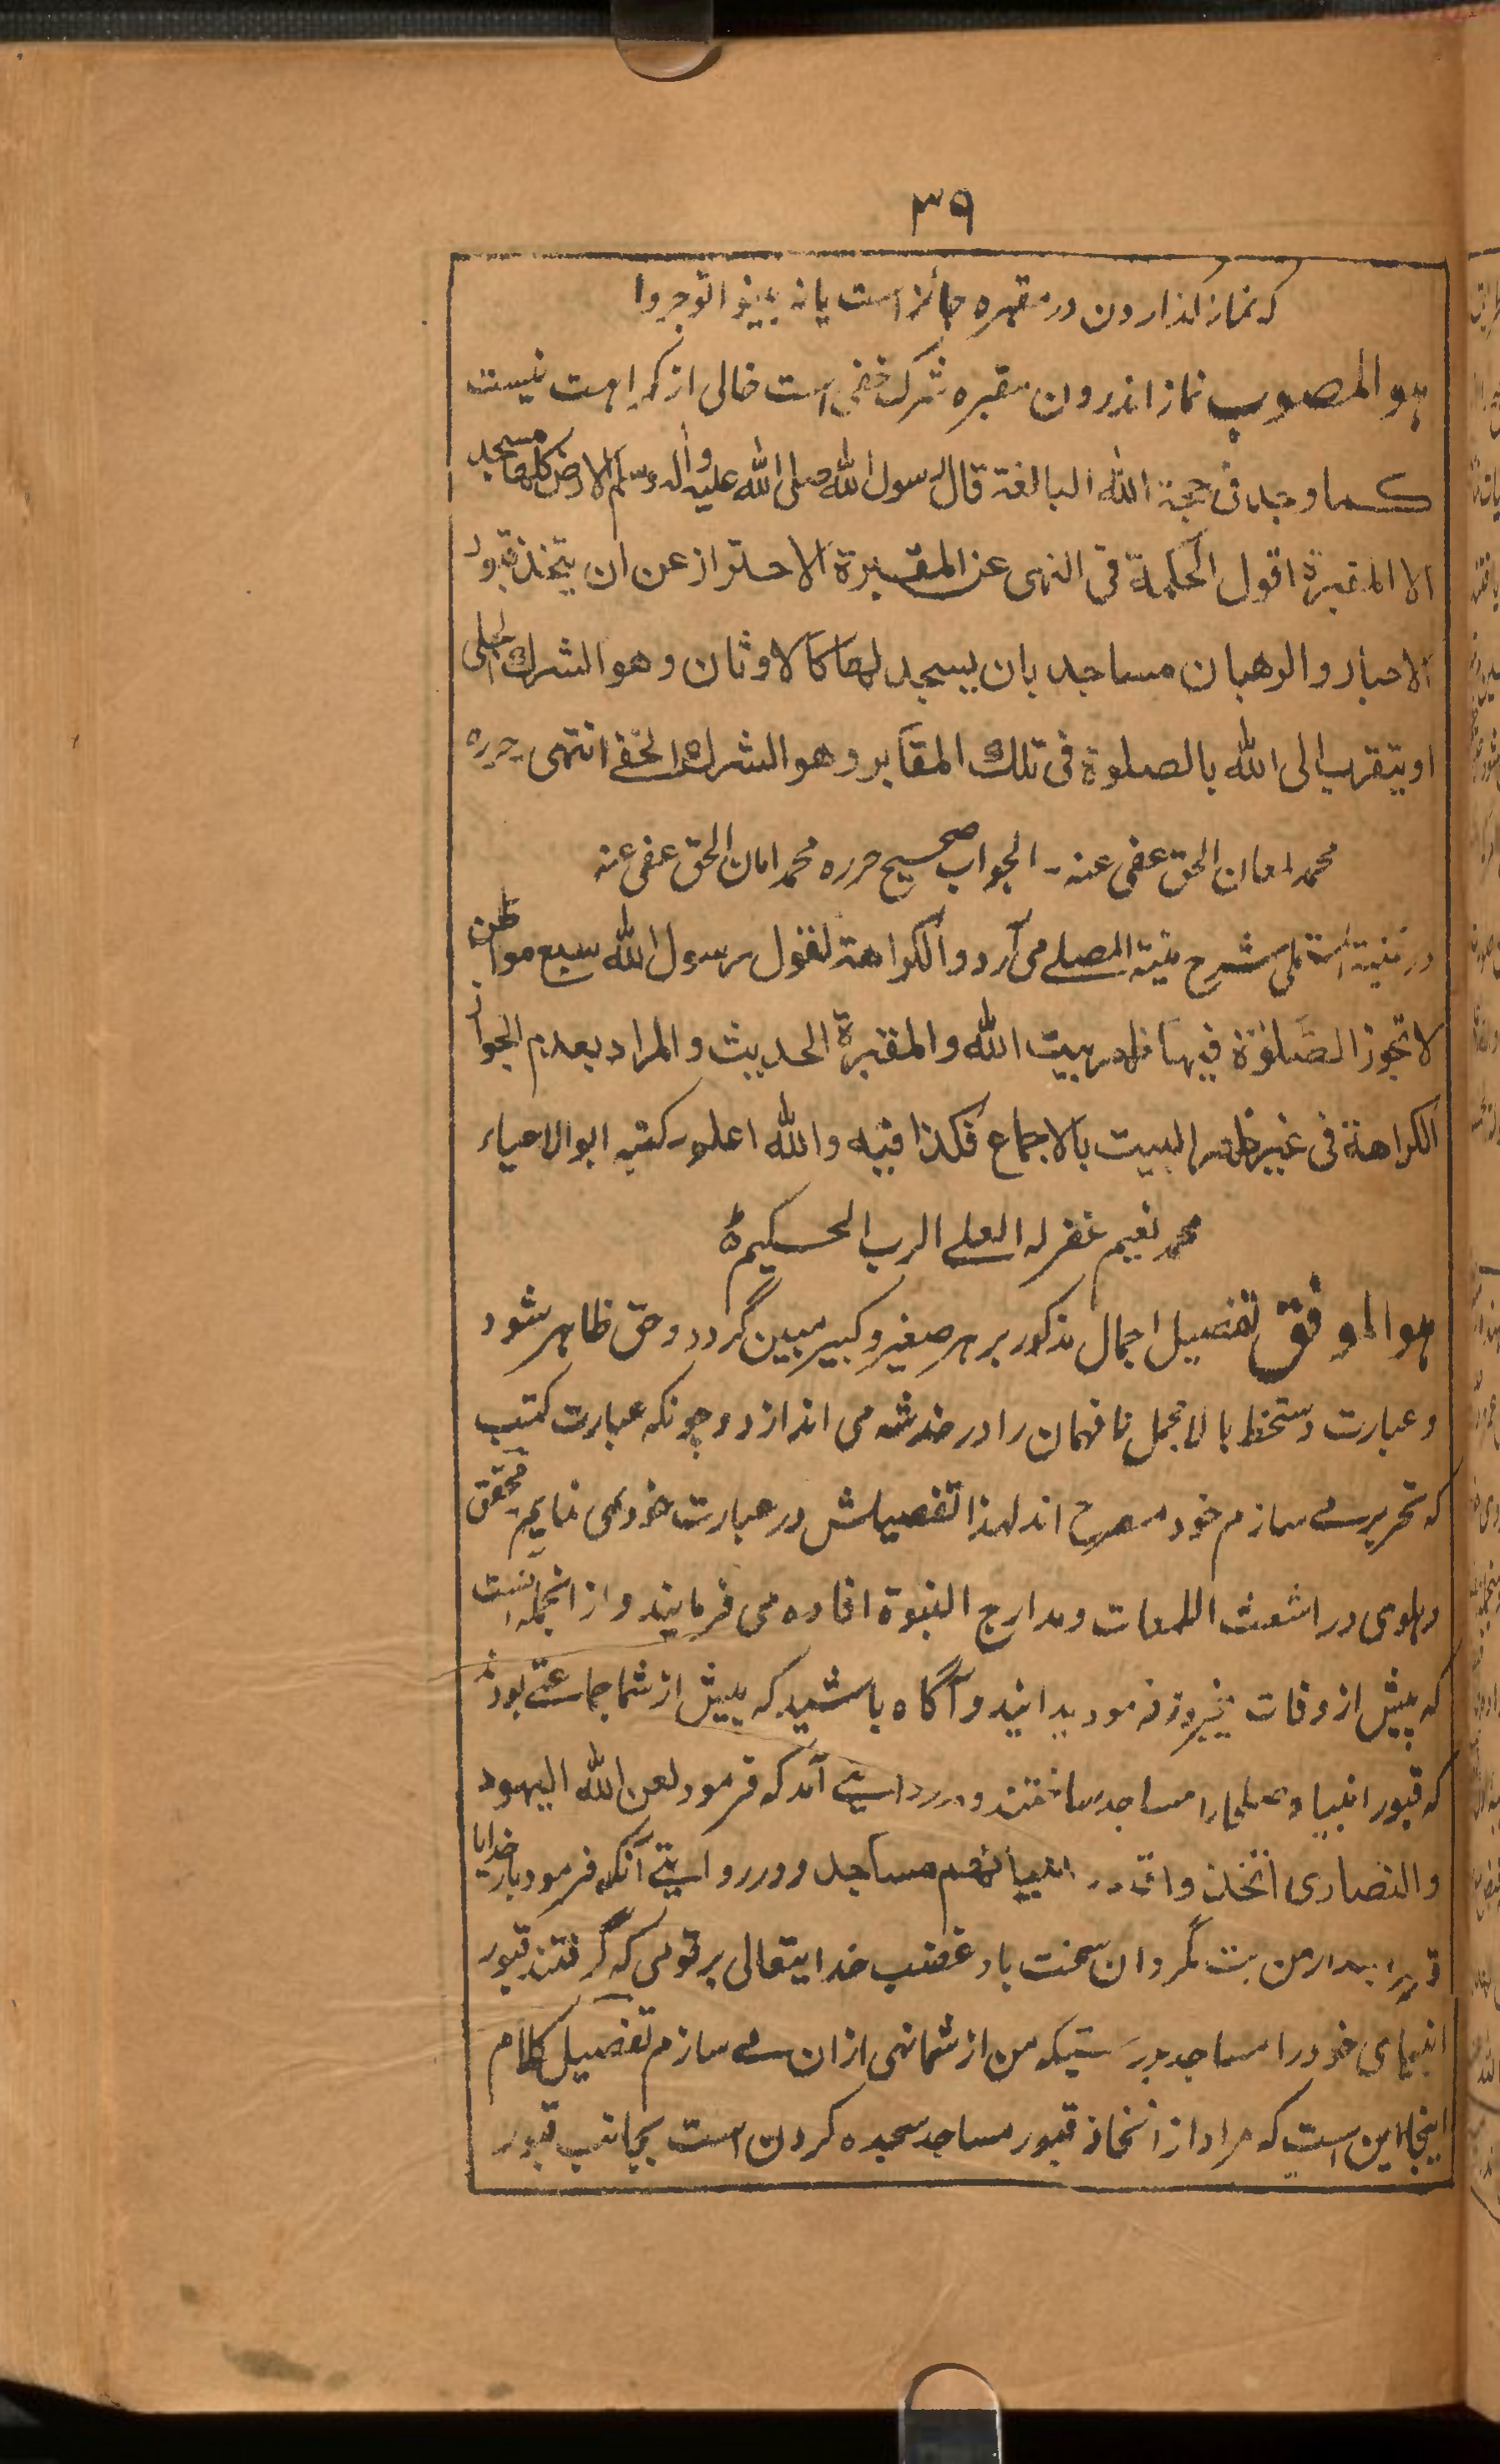 ۳۹
که نماز گذاردن در مقبره جائز است یا نه بینوا توجروا
هو المصوب نماز اندرون مقبره شرک خفی است خالی از کراهت نیست
کما وجد فی حجة الله البالغة قال رسول الله صلی الله علیه وآله وسلم الارض کلها مسجد
الا المقبرة اقول الحکمة فی النهی عن المقبرة الاحتراز عن ان یتخذ قبور
الاحبار والرهبان مساجد بان یسجد لها کالاوثان وهو الشرک الجلی
او یتقرب الی الله بالصلوة فی تلک المقابر وهو الشرک الخفے انتهی حرره
محمد امان الحق عفی عنه - الجواب صحیح حرره محمد امان الحق عفی عنه
در غنیة المستملی شرح منیة المصلے می آرد والکراهة لقول رسول الله سبع مواطن
لا تجوز الصلوة فیها ظهر بیت الله والمقبرة الحدیث والمراد بعدم الجواز
الکراهة فی غیر ظهر البیت بالاجماع فکذا فیه والله اعلم کتبه ابو الاحیاء
محمد نعیم غفر له العلے الرب الحکیم
هو الموفق تفصیل اجمال مذکور بر هر صغیر و کبیر مبین گردد و حق ظاهر شود
و عبارت دستخط بالا مجمل نافهمان را در خدشه می اندازد و چونکه عبارت کتب
که تحریر مے سازم خود مصرح اند لهذا تفصیلش در عبارت خود نمی نمایم محقق
دهلوی در اشعث اللمعات و مدارج النبوة افاده می فرمایند و از انجمله است
که پیش از وفات به پنجروز فرمود بدانید و آگاه باشید که پیش از شما جماعتے بودند
که قبور انبیا و صلحا را مساجد ساختند و در روایتے آمد که فرمود لعن الله الیهود
والنصاری اتخذوا قبور انبیائهم مساجد و در روایتے آنکه فرمود بار خدایا
قبر مرا بعد از من بت مگردان سخت باد غضب خدایتعالی بر قومی که گرفتند قبور
انبیای خود را مساجد بدرستیکه من از شما نهی از ان مے سازم تفصیل کلام
اینجا این است که مراد از اتخاذ قبور مساجد سجده کردن است بجانب قبور